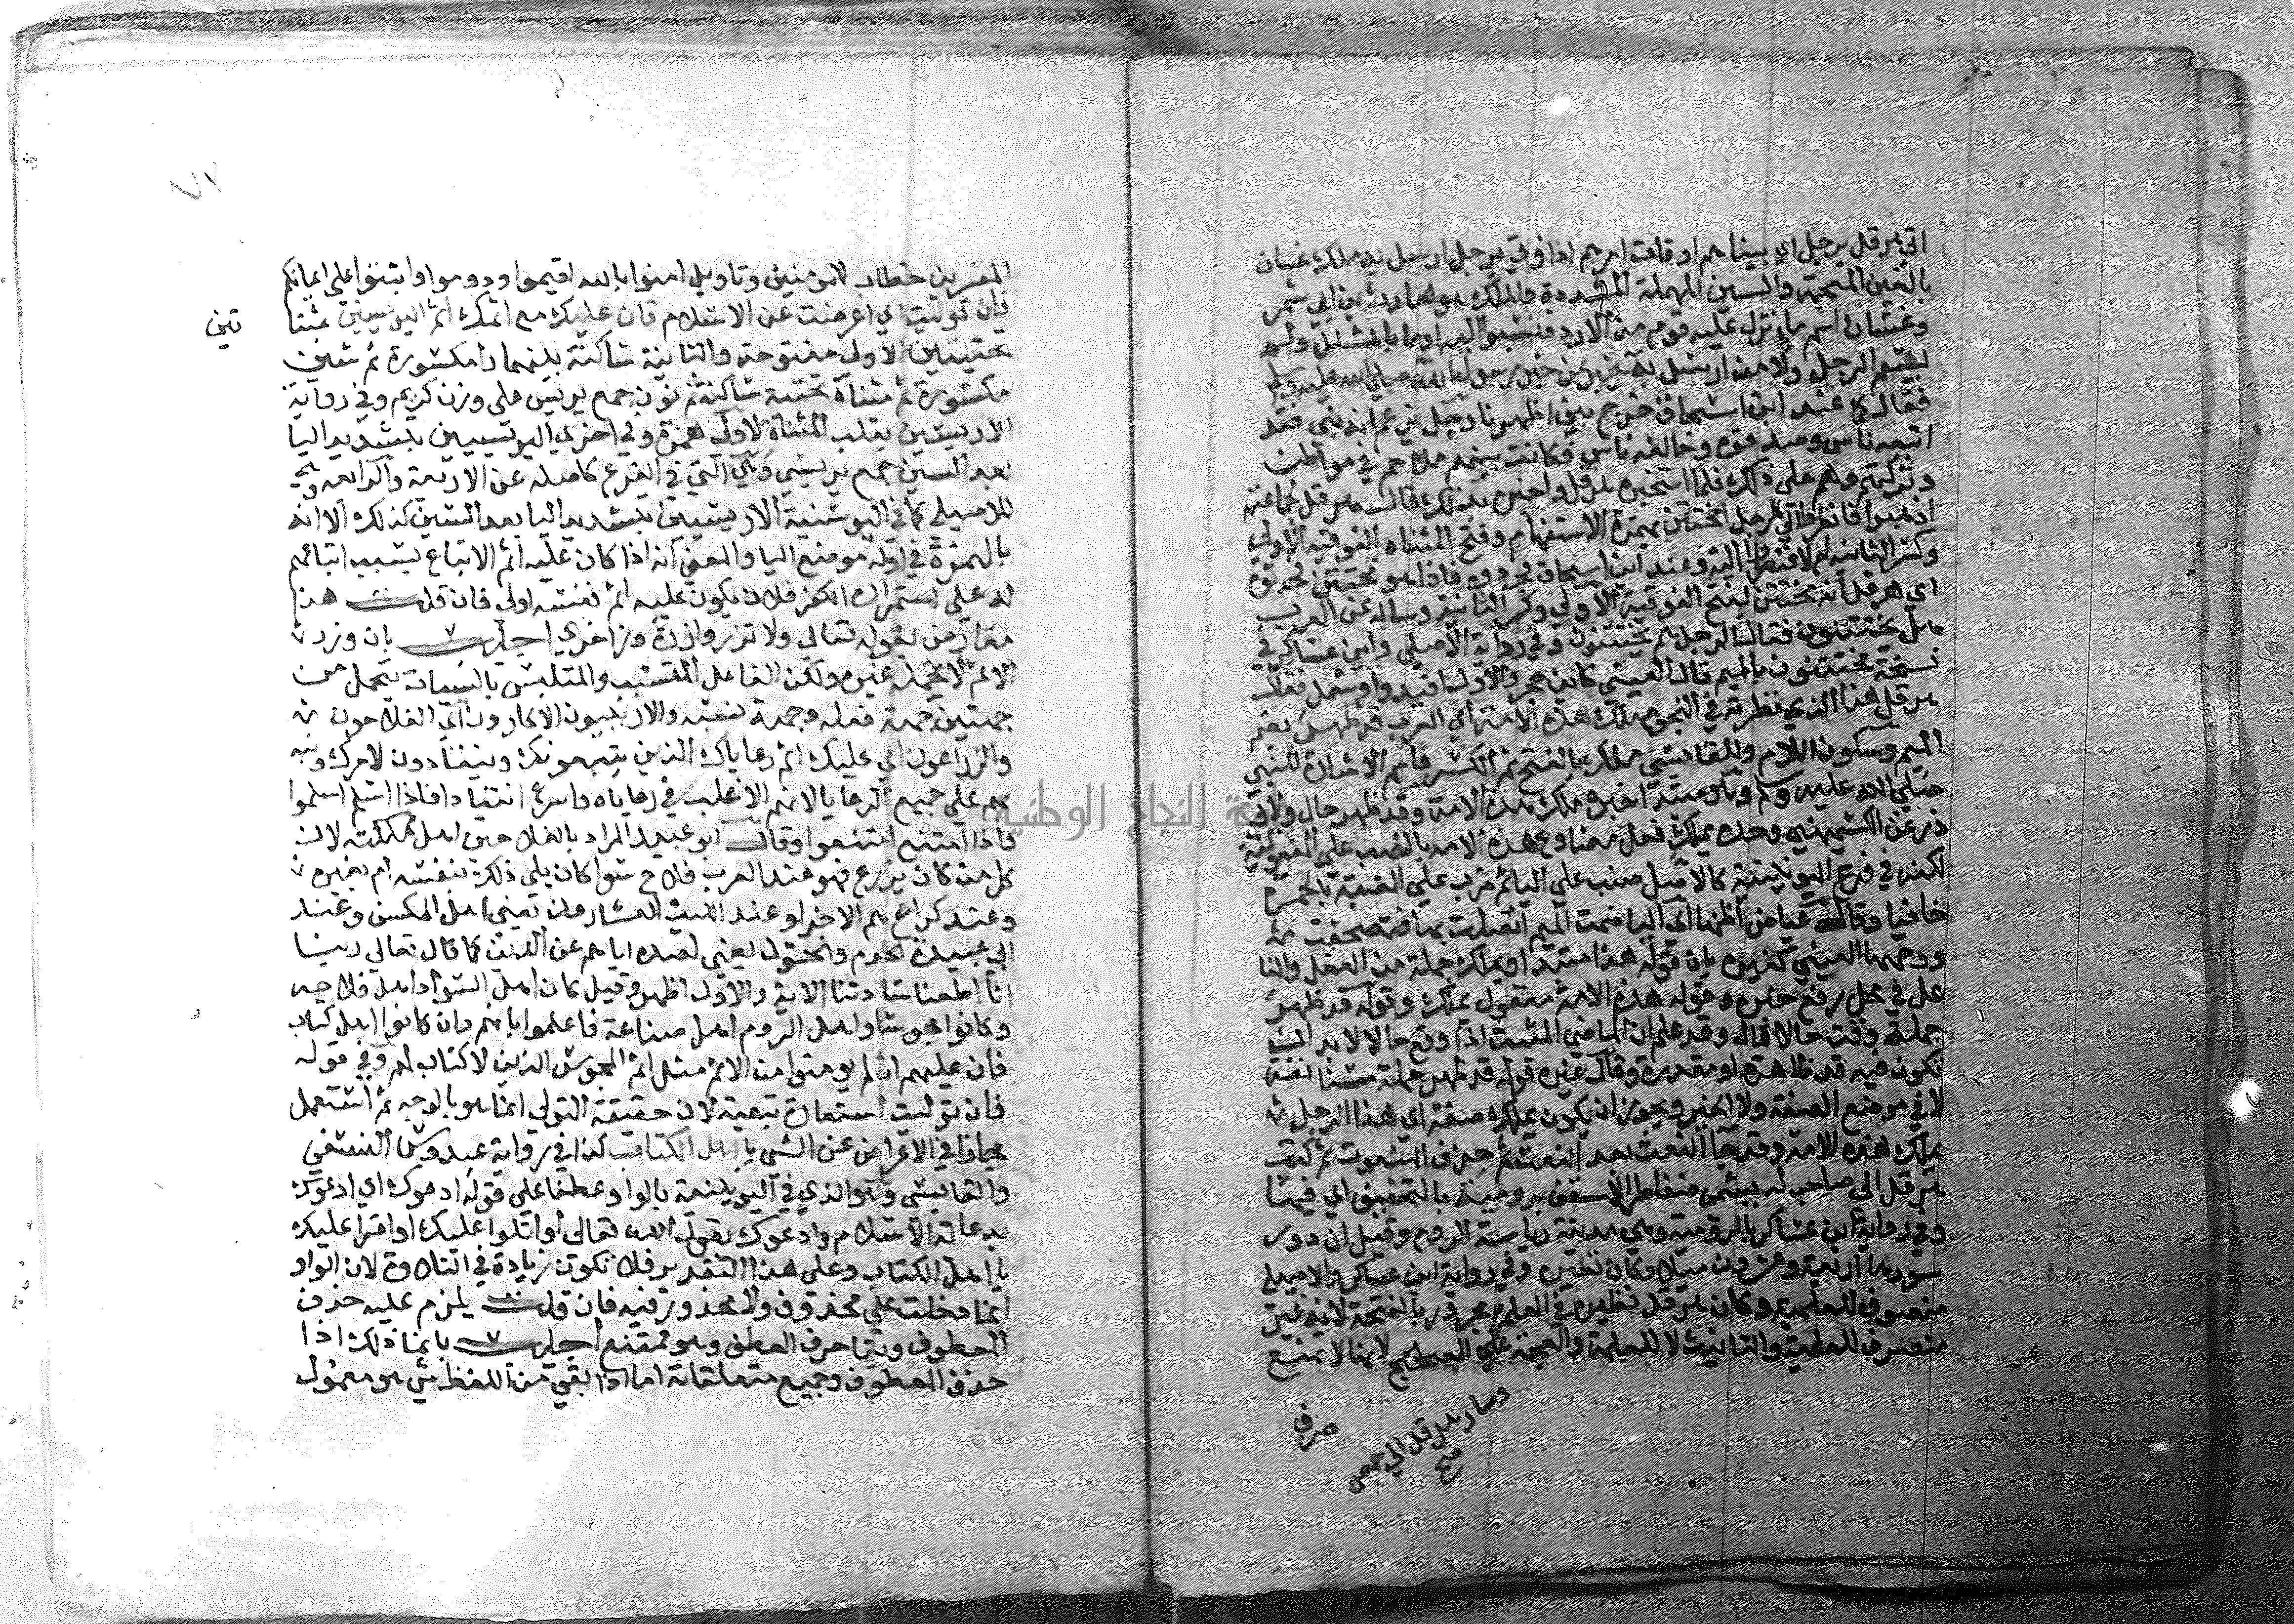 اتي هرقل برجل اي بينما هم اوقات امرهم اذ اوتي برجل ارسل به ملك غسان
بالغين المعجمة والسين المهملة المشددة والملك هو الحارث بن ابي شمر
وغسان اسم ماء نزل عليه قوم من الازد فنسبوا اليه او ما بالمشلل ولم
يسم الرجل ولا من ارسل به يخبر عن خبر رسول الله صلى الله عليه وسلم
فقال كما عند ابن اسحاق خرج بين اظهرنا رجل يزعم انه نبي فقد
اتبعه ناس وصدقوه وخالفه ناس فكانت بينهم ملاحم في مواطن
وتركتهم وهم على ذلك فلما استخبره هرقل واخبره بذلك قال هرقل لجماعته
اذهبوا فانظروا الى الرجل امختتن بهمزة الاستفهام وفتح المثناه الفوقية الاولى
وكسر الثانية ام لا فنظروا اليه وعند ابن اسحاق فجردوه فاذا هو مختتن فحدثوه
اي هرقل انه مختتن بفتح الفوقية الاولى وكسر الثانية وساله عن العرب
هل يختتنون فقال الرجل هم يختتنون وفي رواية الاصيلي وابن عساكر في
نسخة مختتنون بالميم قال العيني كابن حجر والاول افيد واشمل فقال
هرقل هذا الذي نظرته في النجوم ملك هذه الامة اي العرب قد ظهر بضم
الميم وسكون اللام وللقابسي ملك بالفتح ثم الكسر فاسم الاشارة للنبي
صلى الله عليه وسلم وهو مبتدا خبره ملك هذه الامة وقد ظهر حال ولابي
ذر عن الكشميهني وحده يملك فعل مضارع هذه الامة بالنصب على المفعولية
لكنه في فرع اليونينية كالاصل ضبب على اليا ثم ضرب على الضبة بالحمرة
خافيا وقال عياض اظنها اي اليا ضمت الميم اتصلت بها فتصحفت
ووجهها العيني كغيره بان قوله هذا مبتدا ويملك جملة من الفعل والفا
عل في محل رفع خبره وقوله هذه الامة مفعول يملك وقوله قد ظهر
جملة وقعت حالا قال وقد علم ان الماضي المثبت اذا وقع حالا لا بد ان
تكون فيه قد ظاهرة او مقدرة وقال غيره قوله قد ظهر جملة مستانفة
لا في موضع الصفة ولا الخبر ويجوز ان يكون يملك صفة اي هذا الرجل
يملك هذه الامة وقد جا النعت بعد النعت ثم حذف المنعوت ثم كتب
هرقل الى صاحب له يسمى ضغاطر الاسقف برومية بالتخفيف اي فيها
وفي رواية ابن عساكر بالرومية وهي مدينة رياسة الروم وقيل ان دور
سورها اربعة وعشرون ميلا وكان نظيره وفي رواية ابن عساكر والاصيلي
وكان هرقل نظيره في العلم مجرور بالفتحة لانه غير
منصرف للعلمية والتانيث لا للعلمية والعجمة على الصحيح لانها لا تمنع
صرف
وسار هرقل الى حمص
صح
٧٢
المفسرين خطاب للمومنين وتاويل امنوا بالله اقيموا ودوموا واثبتوا على ايمانكم
فان توليت اي اعرضت عن الاسلام فان عليك مع اثمك اثم اليريسين بمثنا
تين
تحتيتين الاولى مفتوحة والثانية ساكنة بينهما را مكسورة ثم سين
مكسورة ثم مثناة تحتية ساكنة ثم نون جمع يريس على وزن كريم وفي رواية
الاريسين بقلب المثناة الاولى همزة وفي اخرى اليريسيين بتشديد اليا
بعد السين جمع يريسي وهي التي في الفرع كاصله عن الاربعة والرابعة وهي
للاصيلي كما في اليونينية الاريسيين بتشديد اليا بعد السين كذلك الا انه
بالهمزة في اوله موضع اليا والمعنى انه اذا كان عليه اثم الاتباع بسبب اتباعهم
له على استمرار الكفر فلان يكون عليه اثم نفسه اولى فان قلت هذا
معارض بقوله تعالى ولا تزر وازرة وزر اخرى اجيب بان وزر
الاثم لا يتحمله غيره ولكن الفاعل المتسبب والمتلبس بالسيئات يتحمل من
جهتين جهة فعله وجهة تسببه والاريسيون الاكارون اي الفلاحون
والزراعون اي عليك اثم رعاياك الذين يتبعونك وينقادون لامرك ونبه
بهم على جميع الرعايا لانهم الاغلب في رعاياه واسرع انقيادا فاذا اسلم اسلموا
فاذا امتنع امتنعوا وقال ابو عبيد المراد بالفلاحين اهل مملكته لان
كل من كان يزرع فهو عند العرب فلاح سوا كان يلي ذلك بنفسه ام بغيره
وعند كراع هم الاجراء وعند الليث العشارون يعني اهل المكس وعند
ابي عبيدة الخدم والخول يعني لصده اياهم عن الدين كما قال تعالى ربنا
انا اطعنا سادتنا الاية والاول اظهر وقيل كان اهل السواد اهل فلاحة
وكانوا مجوسا واهل الروم اهل صناعة فاعلموا بانهم وان كانوا اهل كتاب
فان عليهم ان لم يومنوا من الاثم مثل اثم المجوس الذين لا كتاب لهم وفي قوله
فان توليت استعارة تبعية لان حقيقة التولي انما هو بالوجه ثم استعمل
مجازا في الاعراض عن الشي يا اهل الكتاب كذا في رواية عبدوس النسفي
والقابسي وهو الذي في اليونينية بالواو عطفا على قوله ادعوك اي ادعوك
بدعاية الاسلام وادعوك بقول الله تعالى او اتلوا عليك او اقرا عليك
يا اهل الكتاب وعلى هذا التقدير فلا تكون زيادة في التلاوة لان الواو
انما دخلت على محذوف ولا محذور فيه فان قلت يلزم عليه حذف
المعطوف وبقا حرف العطف وهو ممتنع اجيب بانما ذلك اذا
حذف المعطوف وجميع متعلقاته اما اذا بقي من اللفظ شي هو معمول